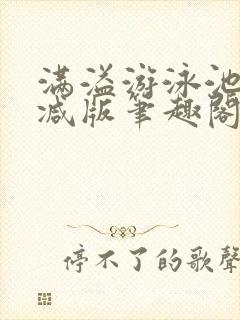 满溢游泳池
减版笔趣阁
停不了的歌聲